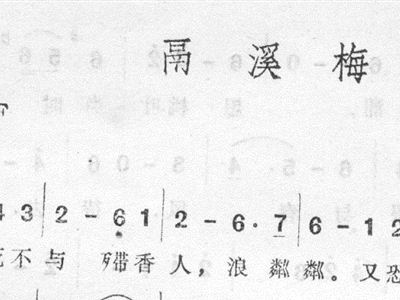 鬲 溪 梅
4 3 | 2 - 6 1 | 2 - 6· 7 | 6 - 1 2
不 与 殢 香 人，浪 粼 粼。又 恐